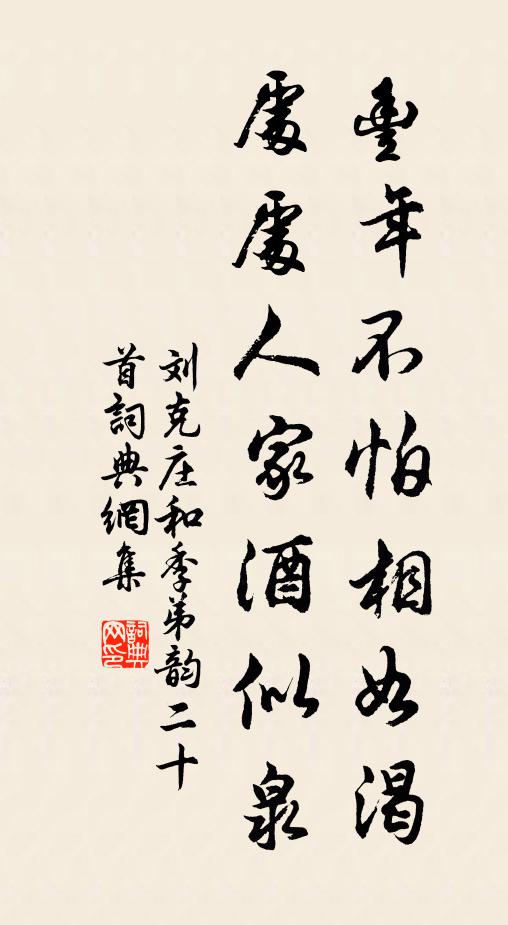 豐年不怕相如渴
處處人家酒似泉
刘克庄和季弟韵二十
首詞典網集
詞典網印